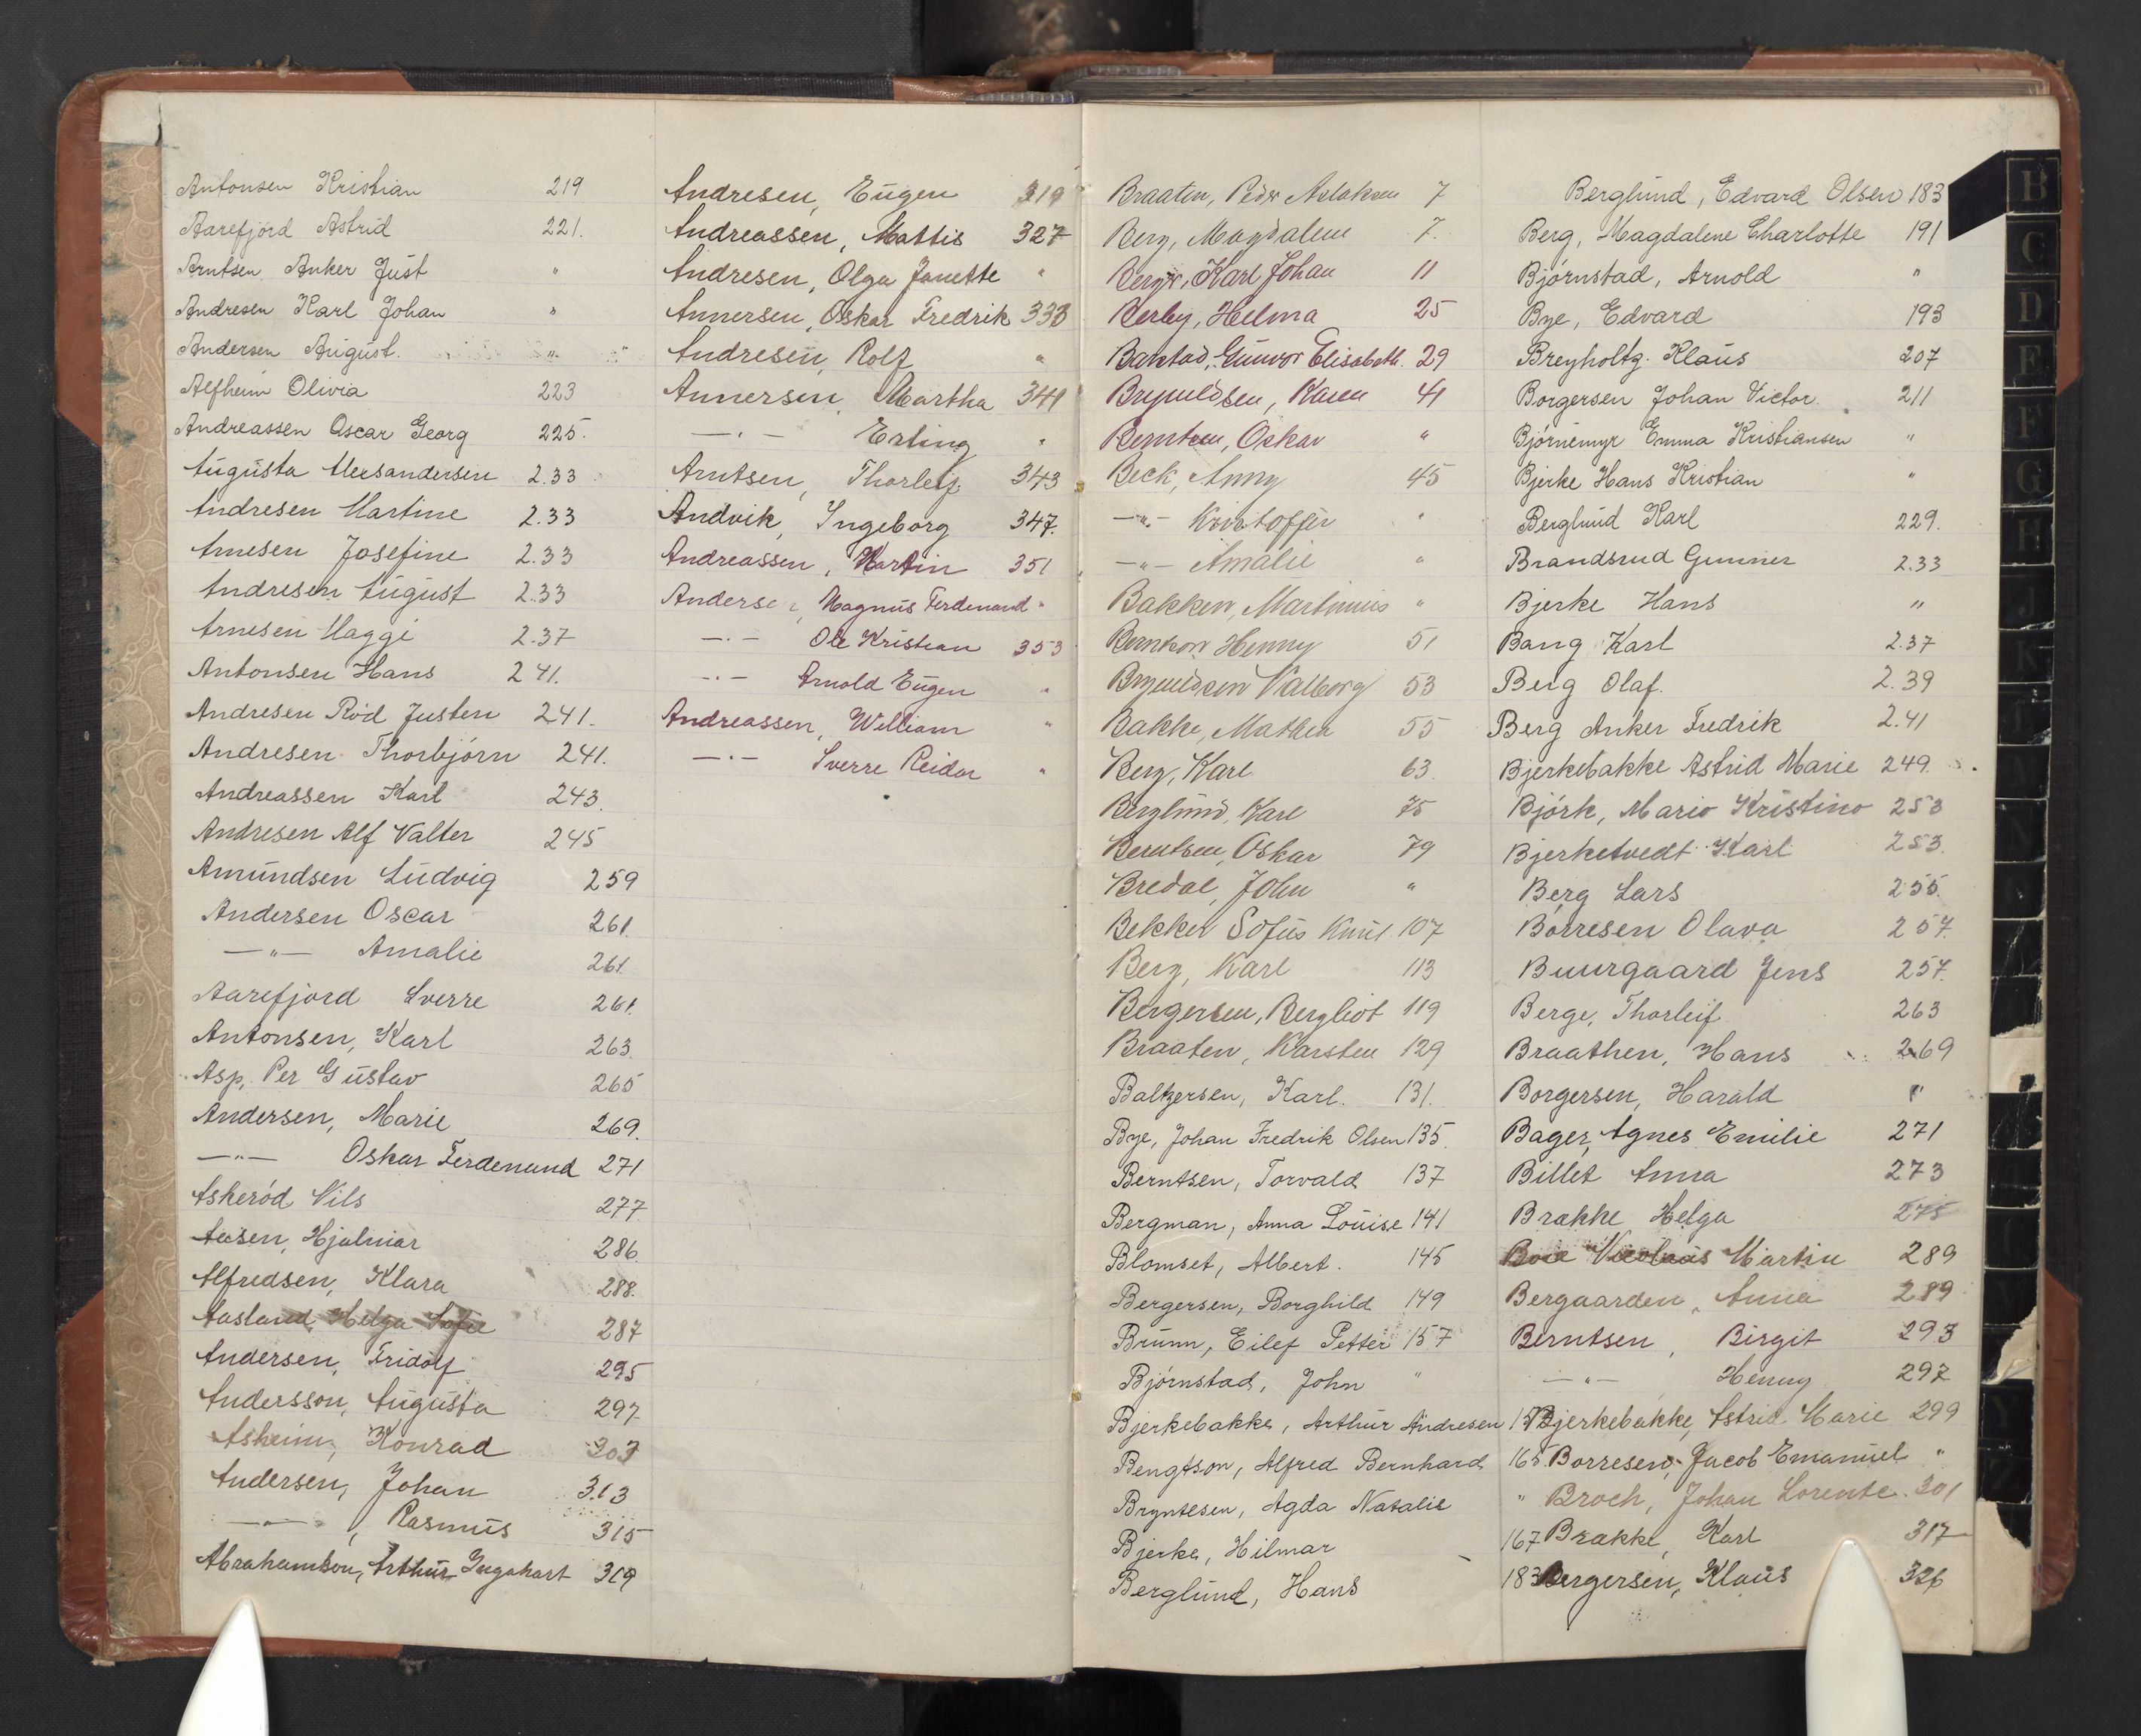 Antonsen Kristian 219
Aarefjord Astrid 221.
Arntsen Anker Just "
Andresen Karl Johan "
Andersen August. "
Alfheim Olivia 223
Andreassen Oscar Georg 225.
Augusta Alexsandersen 2.33
Andresen Martine 2.33
Arnesen Josefine 2.33
Andresen August 2.33
Arnesen Haggi 2.37
Antonsen Hans 241.
Andresen Röd Justen 241.
Andresen Thorbjörn 241.
Andreassen Karl 243.
Andresen Alf Valter 245
Amundsen Ludvig 259
Andersen Oscar 261.
—"— Amalie 261.
Aarefjord Sverre 261.
Antonsen, Karl 263.
Asp, Per Gustav 265
Andersen, Marie 269.
—"— Oskar Ferdenand 271
Askeröd Nils 277.
Hjalmar 286.
Alfredsen, Klara 288.
Aasland, Helga Sofie 287
Andersen, Fridolf 295
Andersson, Augusta 297
Asheim, Konrad 303
Andersen, Johan 313
—"—, Rasmus 315
Abrahamson, Arthur 319
Andresen, Eugen 319
Andreassen, Mattis 327
Andresen, Olga Janette "
Annersen, Oskar Fredrik 333
Andresen, Rolf "
Annersen, Martha 341
—"— Erling "
Arntsen, Thorleif 343
Andvik, Ingeborg 347.
Andreassen, Martin 351
Andersen, Magnus Ferdenand "
—"— Ole Kristian 353
—"— Arnold Eugen "
Andreassen, William "
—"— Sverre Reidar "
Braaten, Peder Aslaksen 7
Berg, Magdalene 7.
Berger, Karl Johan 11
Berby, Helma 25
Gunvor Elisabeth. 29
Brynildsen, Karen 41
Berntsen, Oskar "
Beck, Anny 45
—"— Kristoffer "
—"— Amalie "
Bakken, Martinius "
Berntsen Henny 51
Brynildsen Valborg 53
Bakke, Mathea 55
Berg, Karl 63.
Berglund, Karl 75
Berntsen, Oskar 79
Bredal, John "
Bekker Sofus Knut 107
Berg, Karl 113
Bergersen, Bergliot 119
Braaten, Karsten 129
Baltzersen, Karl. 131.
Bye, Johan Fredrik Olsen 135.
Berntsen, Torvald 137
Bergman, Anna Louise 141
Blomset, Albert. 145
Bergersen, Borghild 149
Brunn, Eilef Petter 157
Björnstad, John "
Bjerkebakke, Arthur Andresen
Bengtson, Alfred Bernhard 165.
Bryntesen, Agda Natalie "
Bjerke, Hilmar 167
Berglund, Hans 183
Berglund, Edvard Olsen 183
Berg, Magdalene Charlotte 191
Björnstad, Arnold "
Bye, Edvard 193
Breyholtz. Klaus 207
Borgersen Johan Victor. 211
Björnemyr Emma Kristiansen "
Bjerke Hans Kristian "
Berglund Karl 229.
Brandsrud Gunner 2.33
Bjerke Hans "
Bang Karl 2.37
Berg Olaf. 2.39
Berg Anker Fredrik 2.41
Bjerkebakke Astrid Marie 249.
Björk, Marie Kristine 253
Bjerketvedt Karl 253.
Berg Lars 255.
Börresen Olava 257.
Buurgaard Jens 257.
Berge, Thorleif 263
Braathen, Hans 269
Borgersen, Harald "
Bager, Agnes Emilie 271
Billet Anna 273
Brække Helga 275
Nicolaus Martin 289
Bergaarden, Anna 289
Berntsen, Birgit 293
—"— Henny 297
Bjerkebakke, Astrid Marie 299
Borresen, Jacob Emanuel "
Broch, Johan Lorentz. 301
Brække, Karl 317
Bergersen, Klaus 326
B
C
D
E
F
G
H
J
K
N
Y